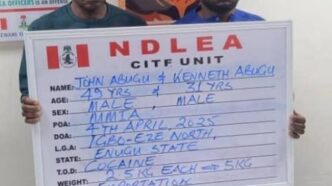 NDLEA
CITF UNIT
NAME: JOHN ABUGU & KENNETH ABUGU
AGE: 49 YRS & 31 YRS
SEX: MALE, MALE
POA: MMIA
DOA: 4TH APRIL, 2025
L.G.A: IGBO-EZE NORTH,
STATE: ENUGU STATE
T.O.D: COCAINE
WEIGHT: 2.5KG EACH = 5KG
EXPORTATION